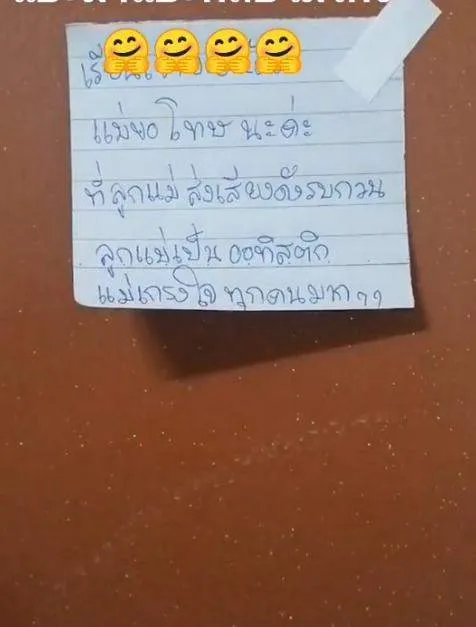 เรียน
แม่ขอโทษ นะค่ะ
ที่ลูกแม่ ส่งเสียงดังรบกวน
ลูกแม่เป็น ออทิสติก
แม่เกรงใจ ทุกคนมาก ๆๆ